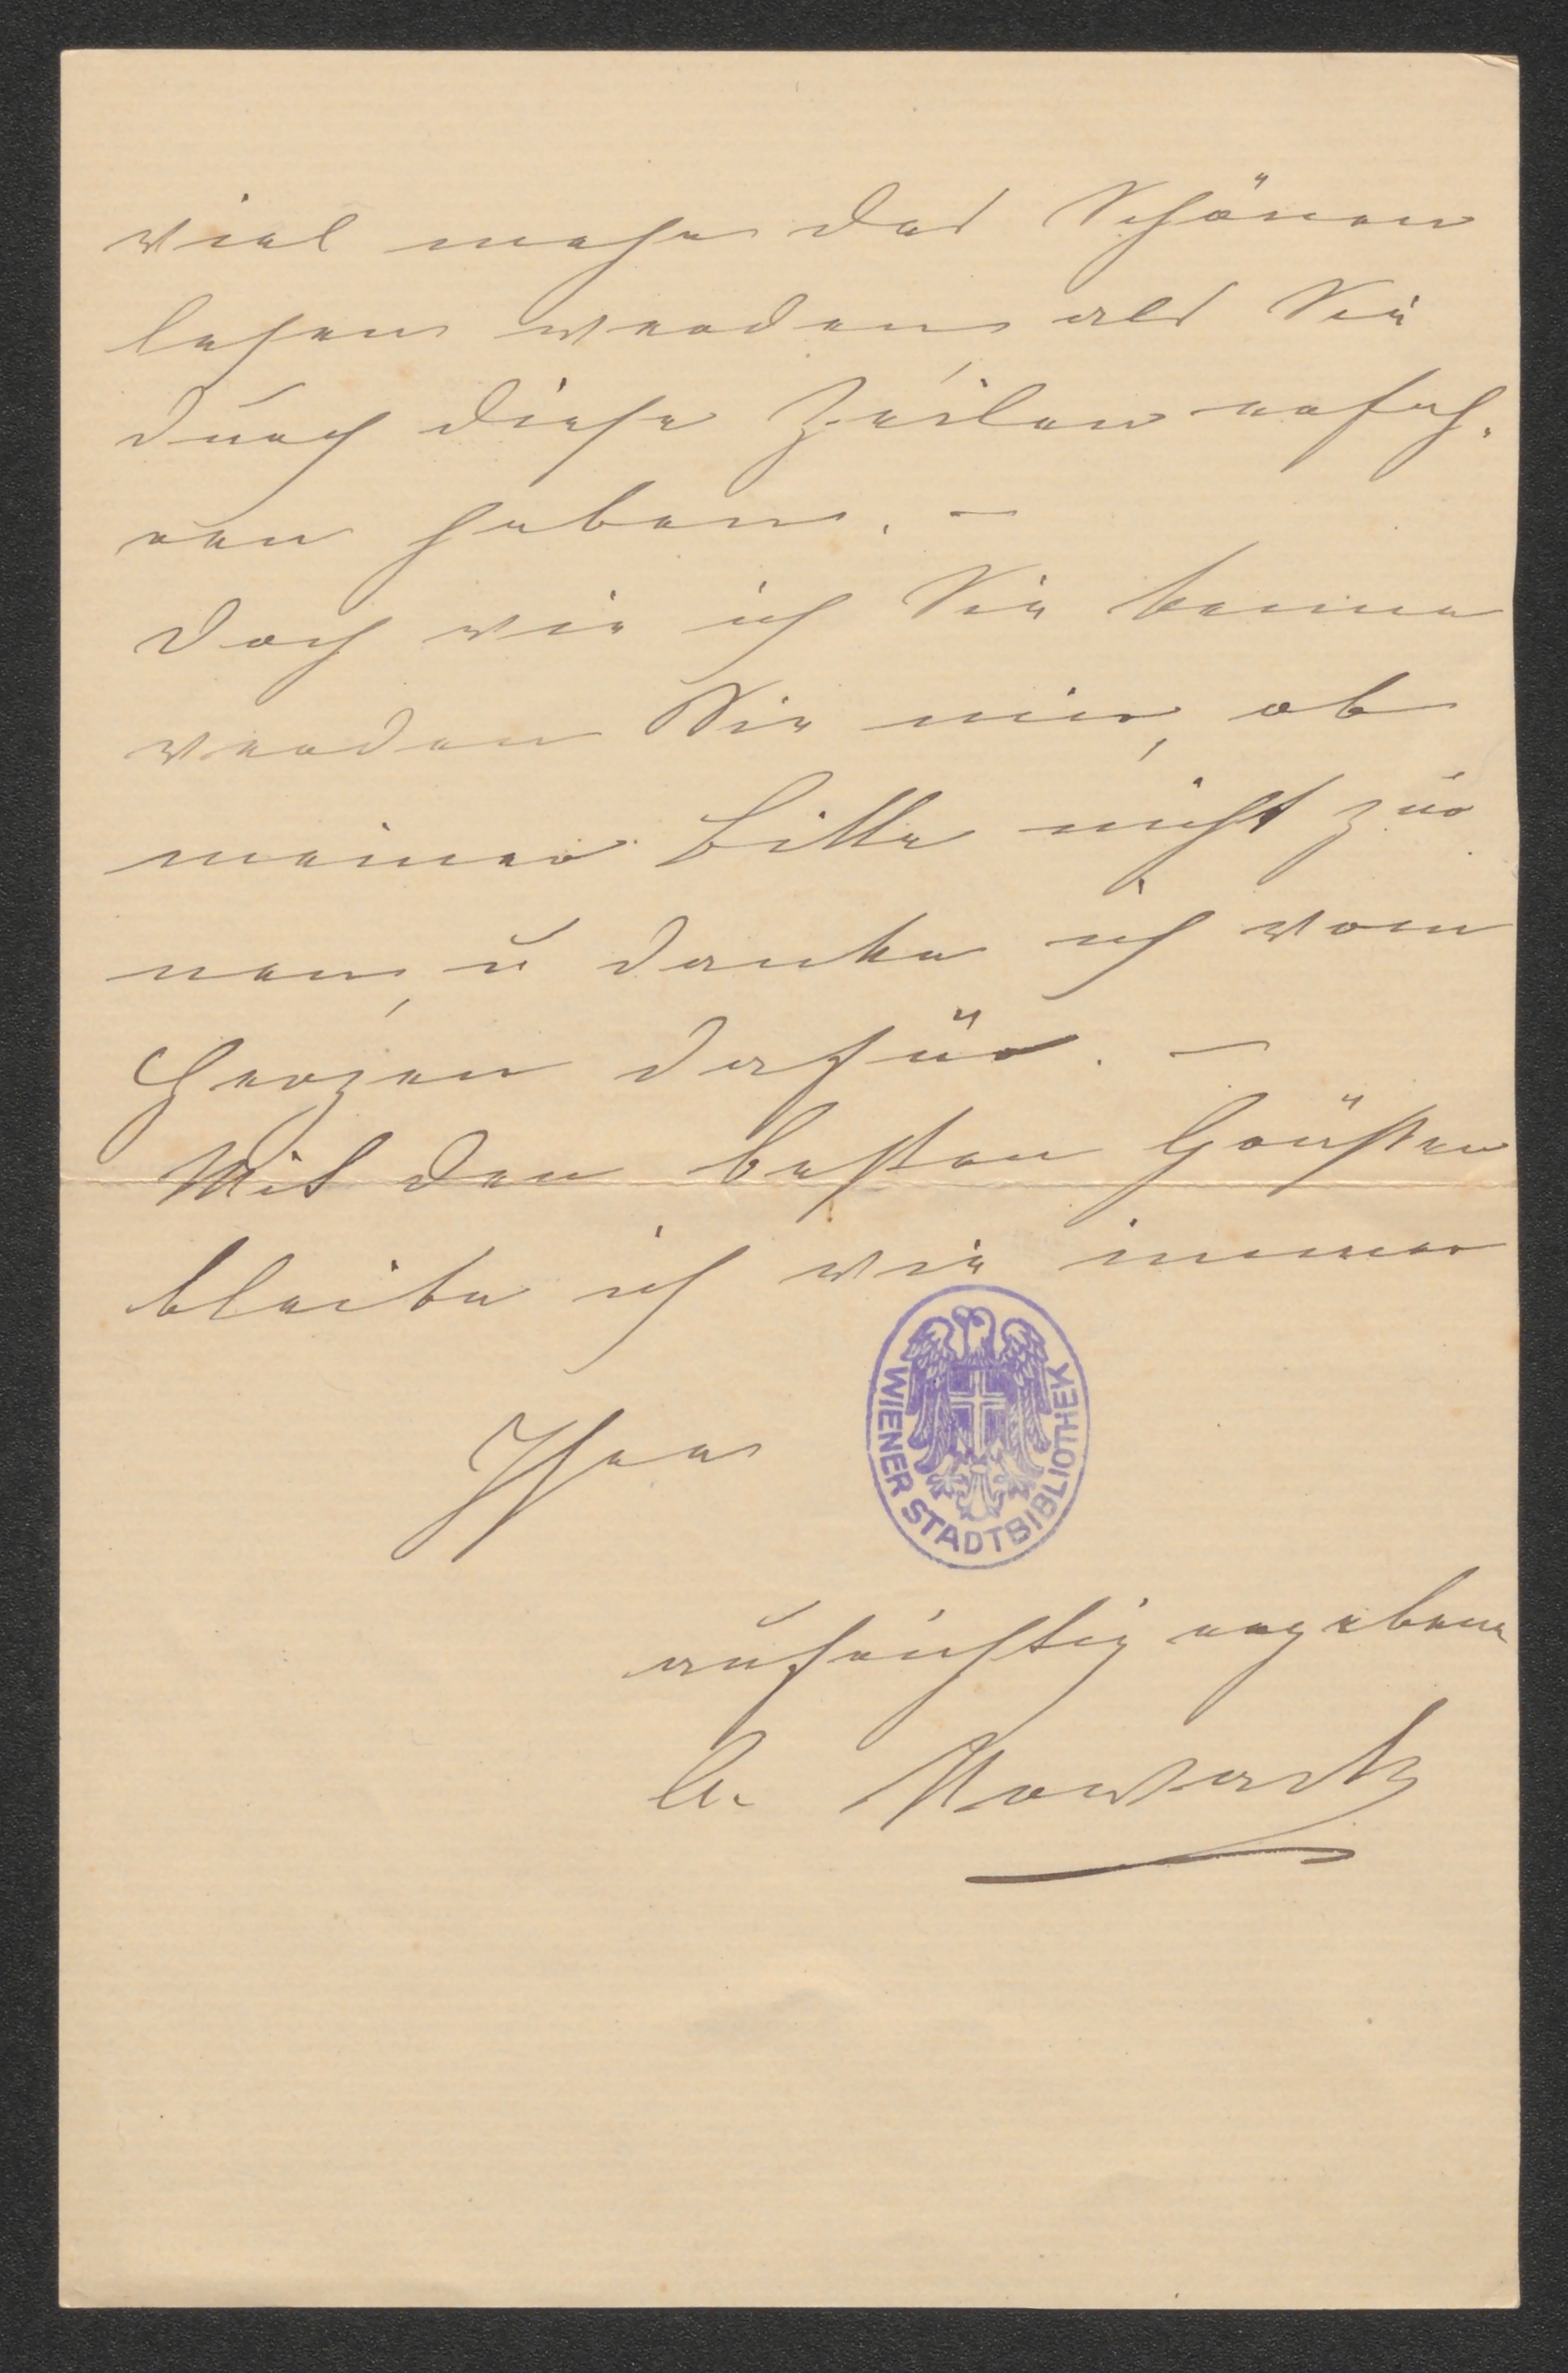 viel mehr des Schönen
sehen werden, als Sie
durch diese Zeilen erfah-
ren haben. –
Doch wie ich Sie kenne
werden Sie mir, ob
meiner Bitte nicht zür
nen, u danke ich vom
Herzen dafür. –
Mit den besten Grüßen
bleibe ich wie immer
Ihre
WIENER STADTBIBLIOTHEK
aufrichtig ergebene
Nowack